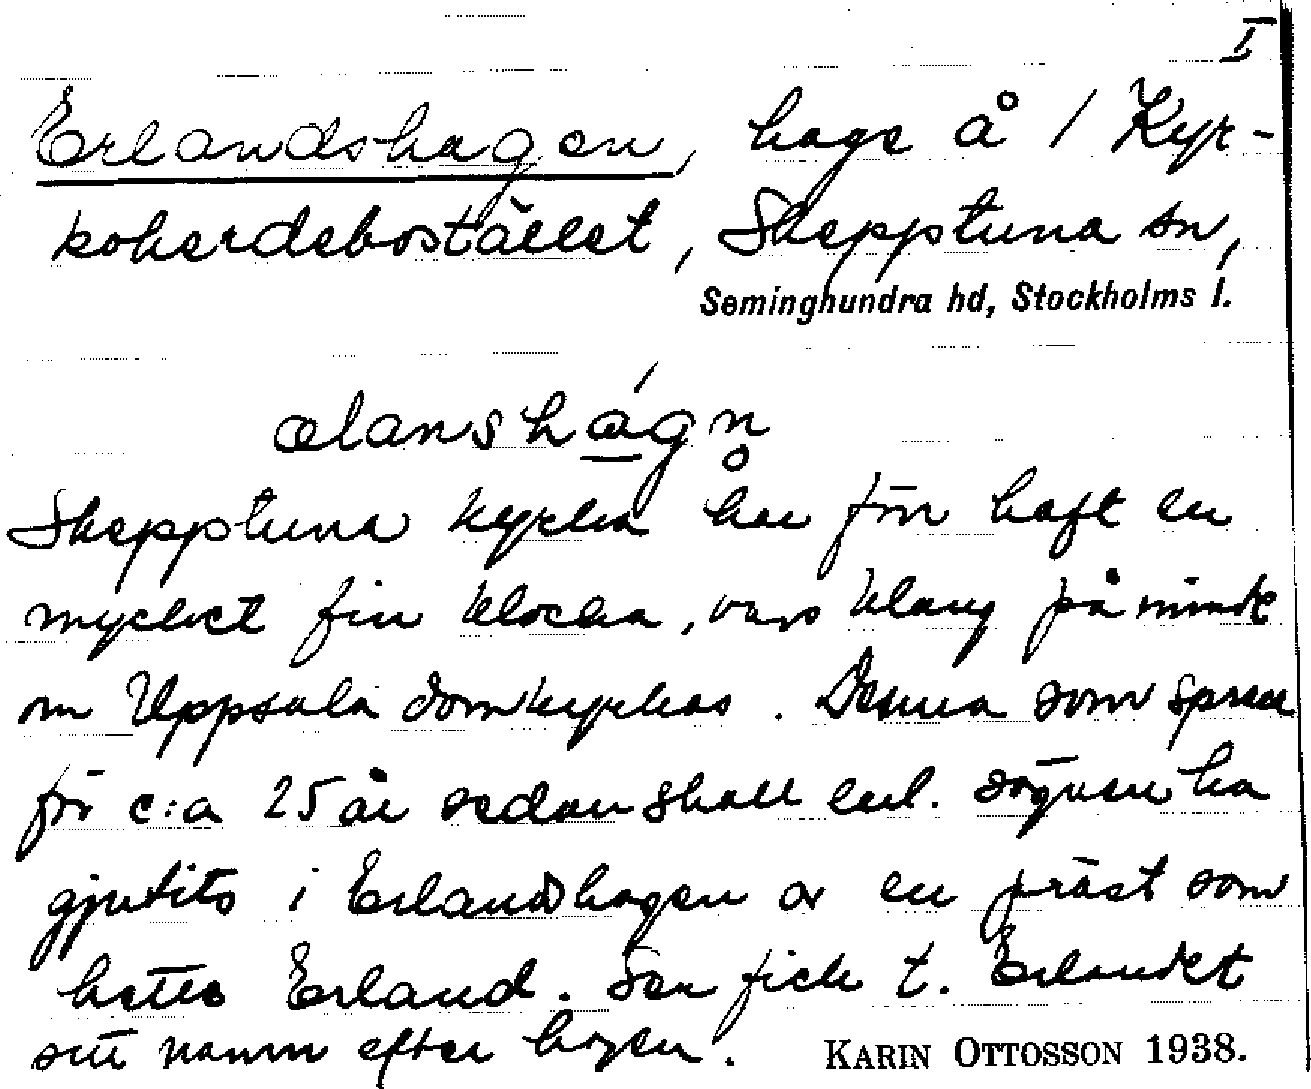 I
Erlandshagen, hage å 1 Kyr-
koherdebostället, Skepptuna sn,
Seminghundra hd, Stockholms l.
ælanshágn
Skepptuna kyrka har förr haft en
mycket fin klocka, vars klang påminde
om Uppsala domkyrkas. Denna som sprack
för c:a 25 år sedan skall enl. sägnen ha
gjutits i Erlandshagen av en präst som
hette Erland. Den fick t.
sitt namn efter hagen.
KARIN OTTOSSON 1938.